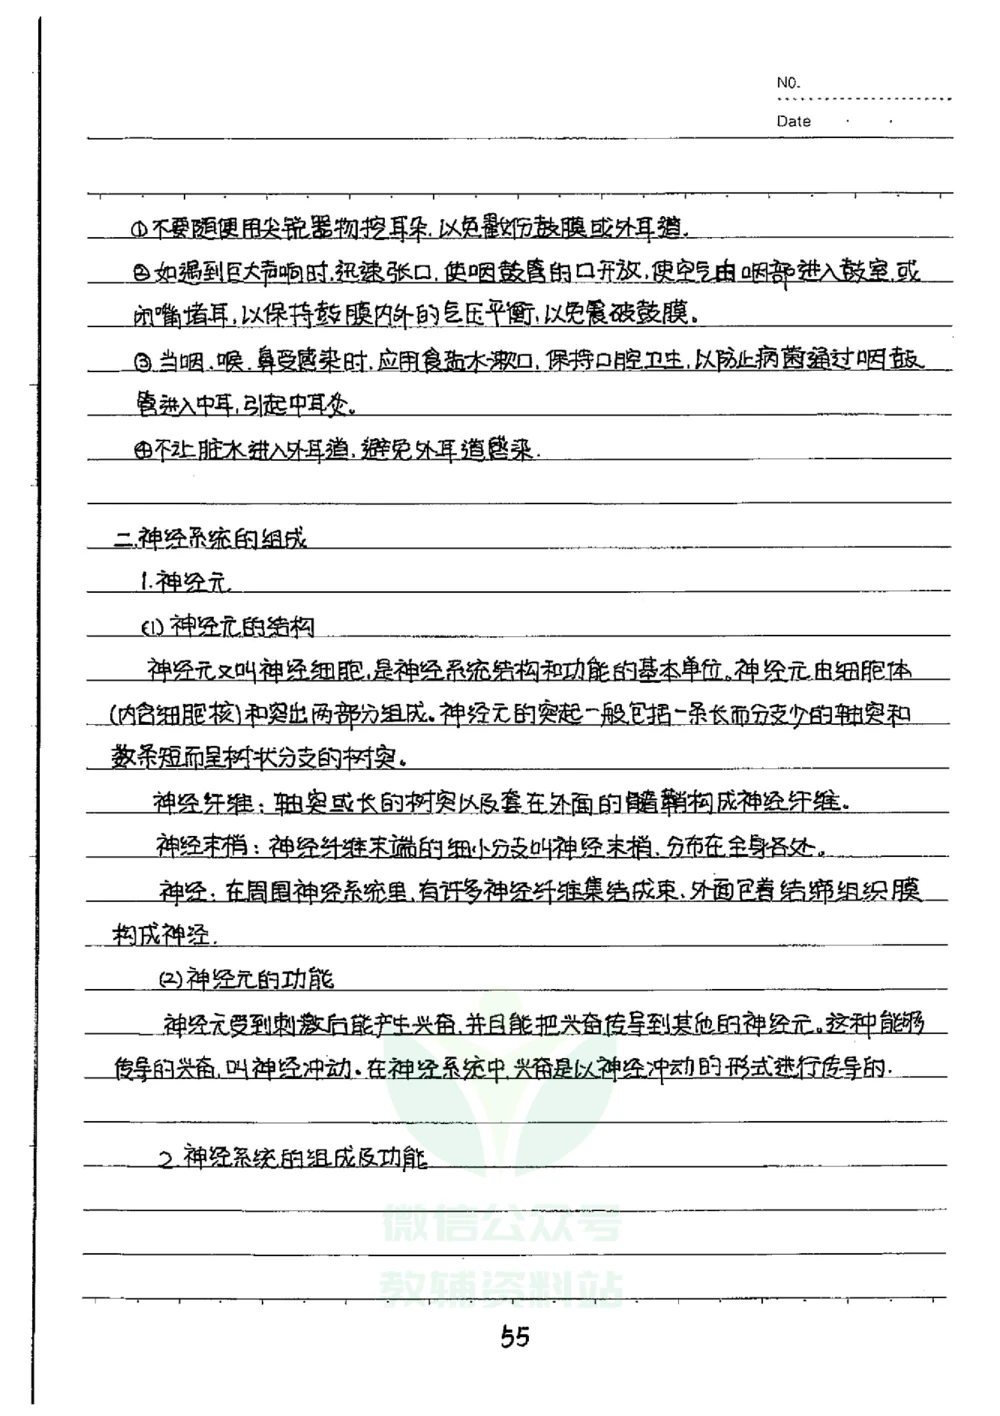 NO.
Date
①不要随便用尖锐器物挖耳朵,以免戳伤鼓膜或外耳道.
②如遇到巨大声响时,迅速张口,使咽鼓管的口开放,使空气由咽部进入鼓室,或
闭嘴堵耳,以保持鼓膜内外的气压平衡,以免震破鼓膜。
③当咽、喉、鼻受感染时,应用食盐水漱口,保持口腔卫生,以防止病菌通过咽鼓
管进入中耳,引起中耳炎。
④不让脏水进入外耳道,避免外耳道感染.
二.神经系统的组成
1.神经元
(1)神经元的结构
神经元又叫神经细胞,是神经系统结构和功能的基本单位。神经元由细胞体
(内含细胞核)和突出两部分组成。神经元的突起一般包括一条长而分支少的轴突和
数条短而呈树状分支的树突。
神经纤维:轴突或长的树突以及套在外面的髓鞘构成神经纤维。
神经末梢:神经纤维末端的细小分支叫神经末梢,分布在全身各处。
神经:在周围神经系统里,有许多神经纤维集结成束,外面包着结缔组织膜
构成神经.
(2)神经元的功能
神经元受到刺激后能产生兴奋,并且能把兴奋传导到其他的神经元。这种能够
传导的兴奋,叫神经冲动。在神经系统中,兴奋是以神经冲动的形式进行传导的.
2.神经系统的组成及功能
微信公众号
教辅资料站
55